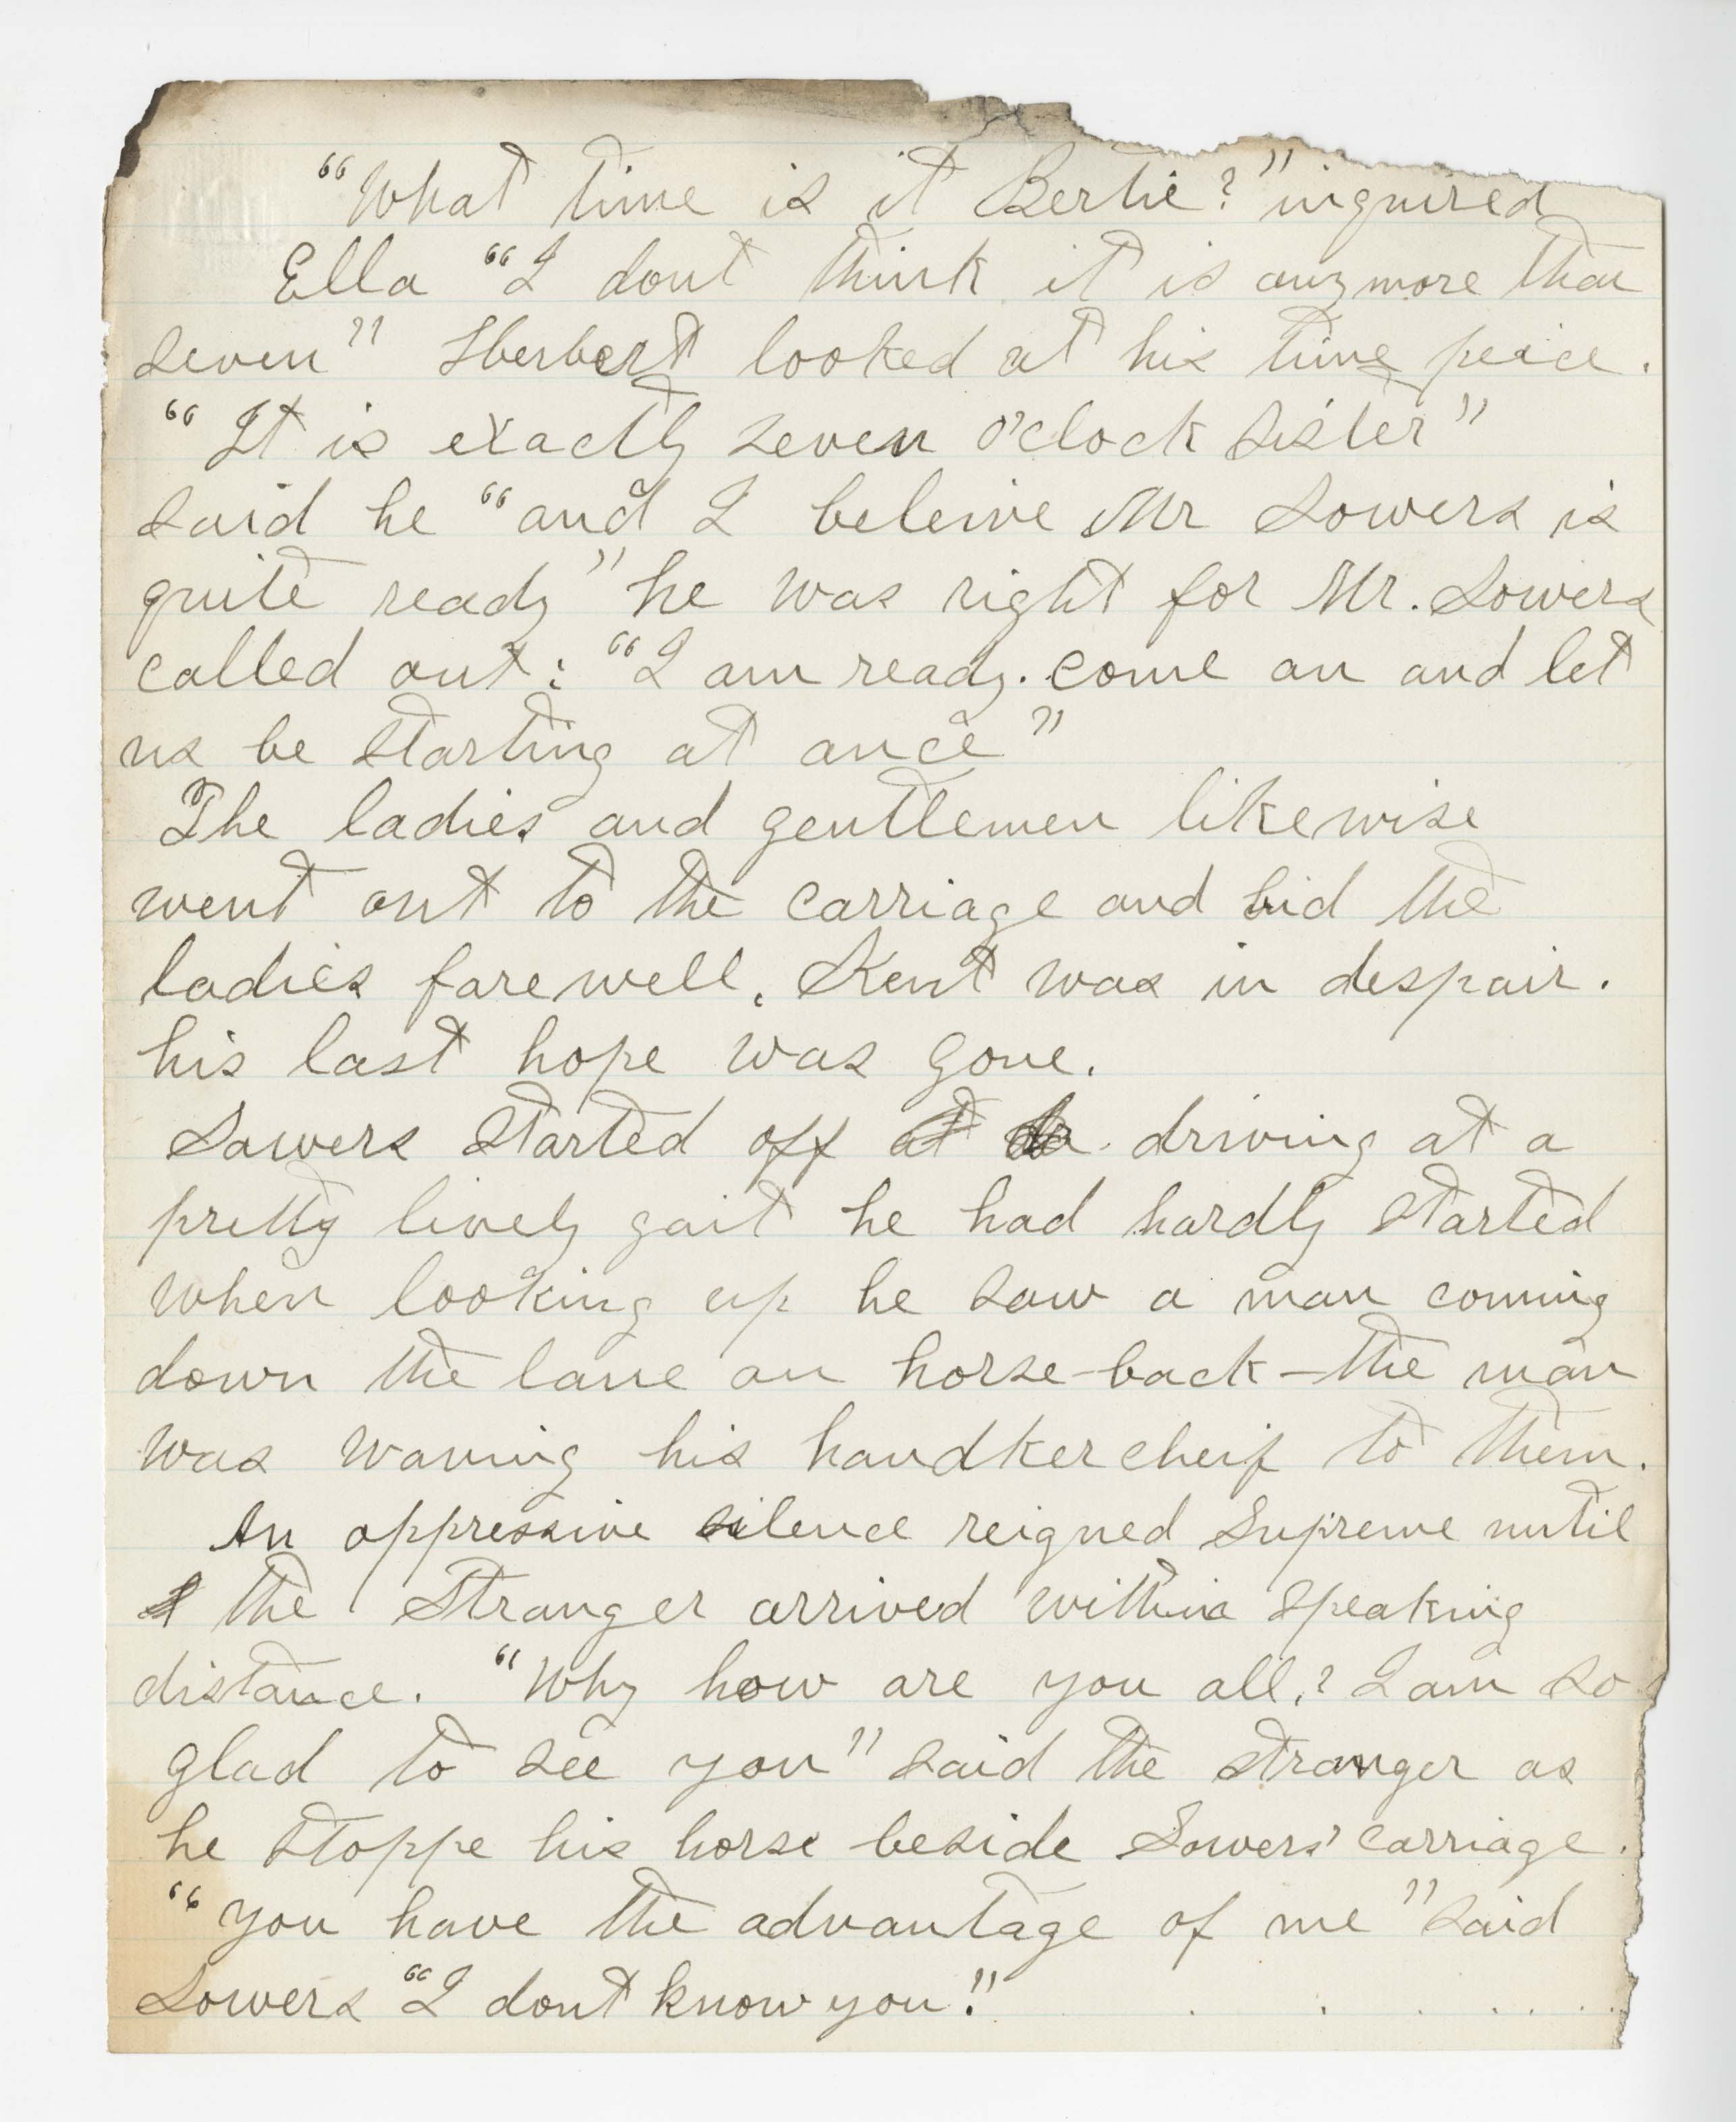 “What time is it Bertie?” inquired
Ella “I dont think it is anymore than
seven” Herbert looked at his time peice.
“It is exactly seven o'clock sister”
said he “and I beleive Mr Sowers is
quite ready” he was right for Mr. Sowers
called out: “I am ready. come on and let
us be starting at once”
The ladies and gentlemen likewise
went out to the carriage and bid the
ladies farewell. Kent was in despair.
his last hope was gone.
Sowers started off at driving at a
pretty lively gait he had hardly started
when looking up he saw a man coming
down the lane on horse-back – the man
was waving his handkercheif to them.
An oppressive silence reigned supreme until
the stranger arrived within speaking
distance. “Why how are you all? I am so
glad to see you” said the stranger as
he stoppe his horse beside Sowers' carriage.
“you have the advantage of me” said
Sowers “I dont know you.”